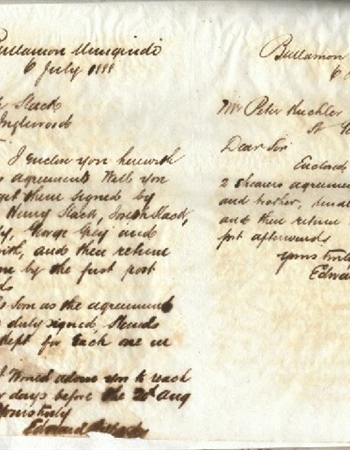 Bullamon Mungindi
6 July 1888
Slack
Inglewood
I Enclose you herewith
agreements Will you
get them signed by
Henry Slack, Joseph Slack,
George Grey and
and then return
by the first post
soon as the agreements
duly signed, Stands
kept for Each one in
I Would advise you to reach
days before the 20th Aug
Yours truly
Edward
Bullamon
6
Mr Peter Kuchler
St
Dear Sir
Enclosed
2 Shearers agreements
and brother,
and then return
post afterwards
Yours truly
Edward